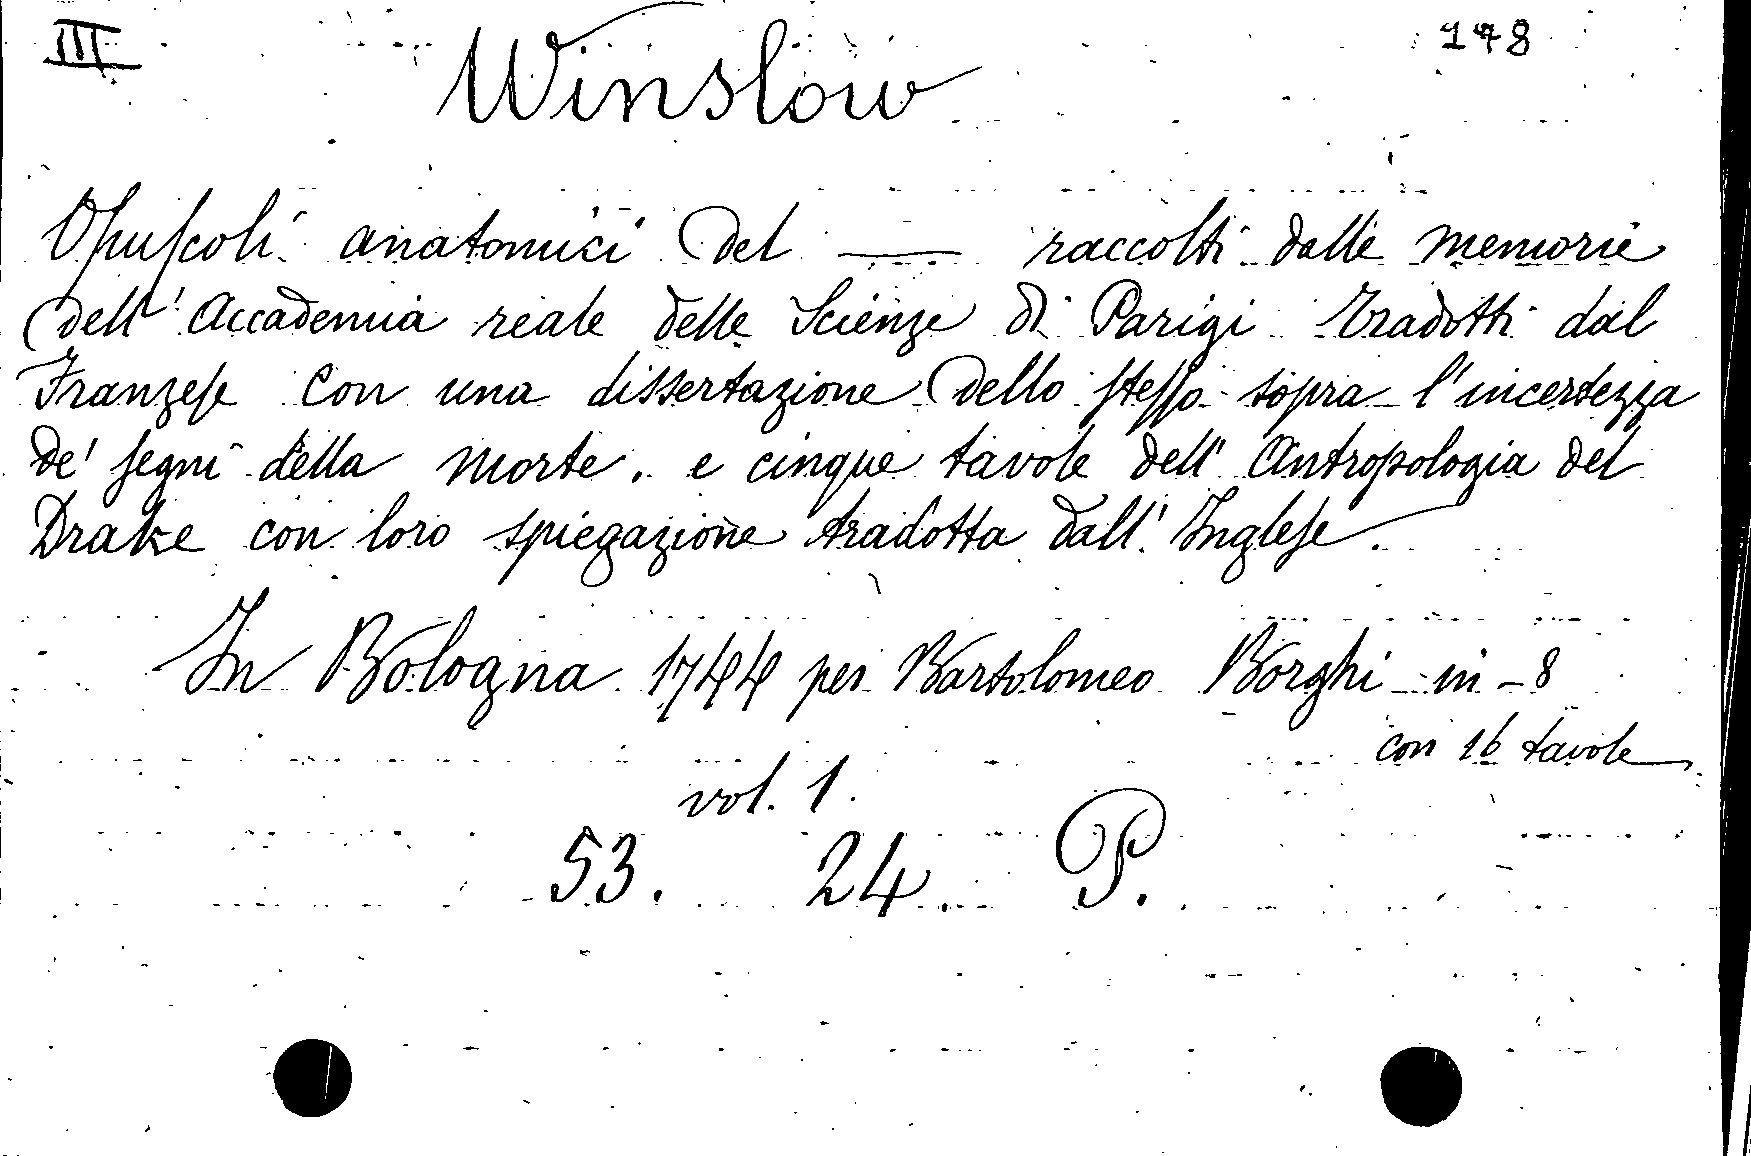 III 178
Winslow
Opuſcoli anatomici del —— raccolti dalle memorie
dell' Accademia reale delle Scienze di Parigi tradotti dal
Franzeſe con una dissertazione dello ſteſſo sopra l'incertezza
de' ſegni della morte. e cinque tavole dell' Antropologia del
Drake con loro spiegazione tradotta dall' Ingleſe
In Bologna 1744 per Bartolomeo Borghi in-8
con 16 tavole
vol. 1.
53. 24. P.